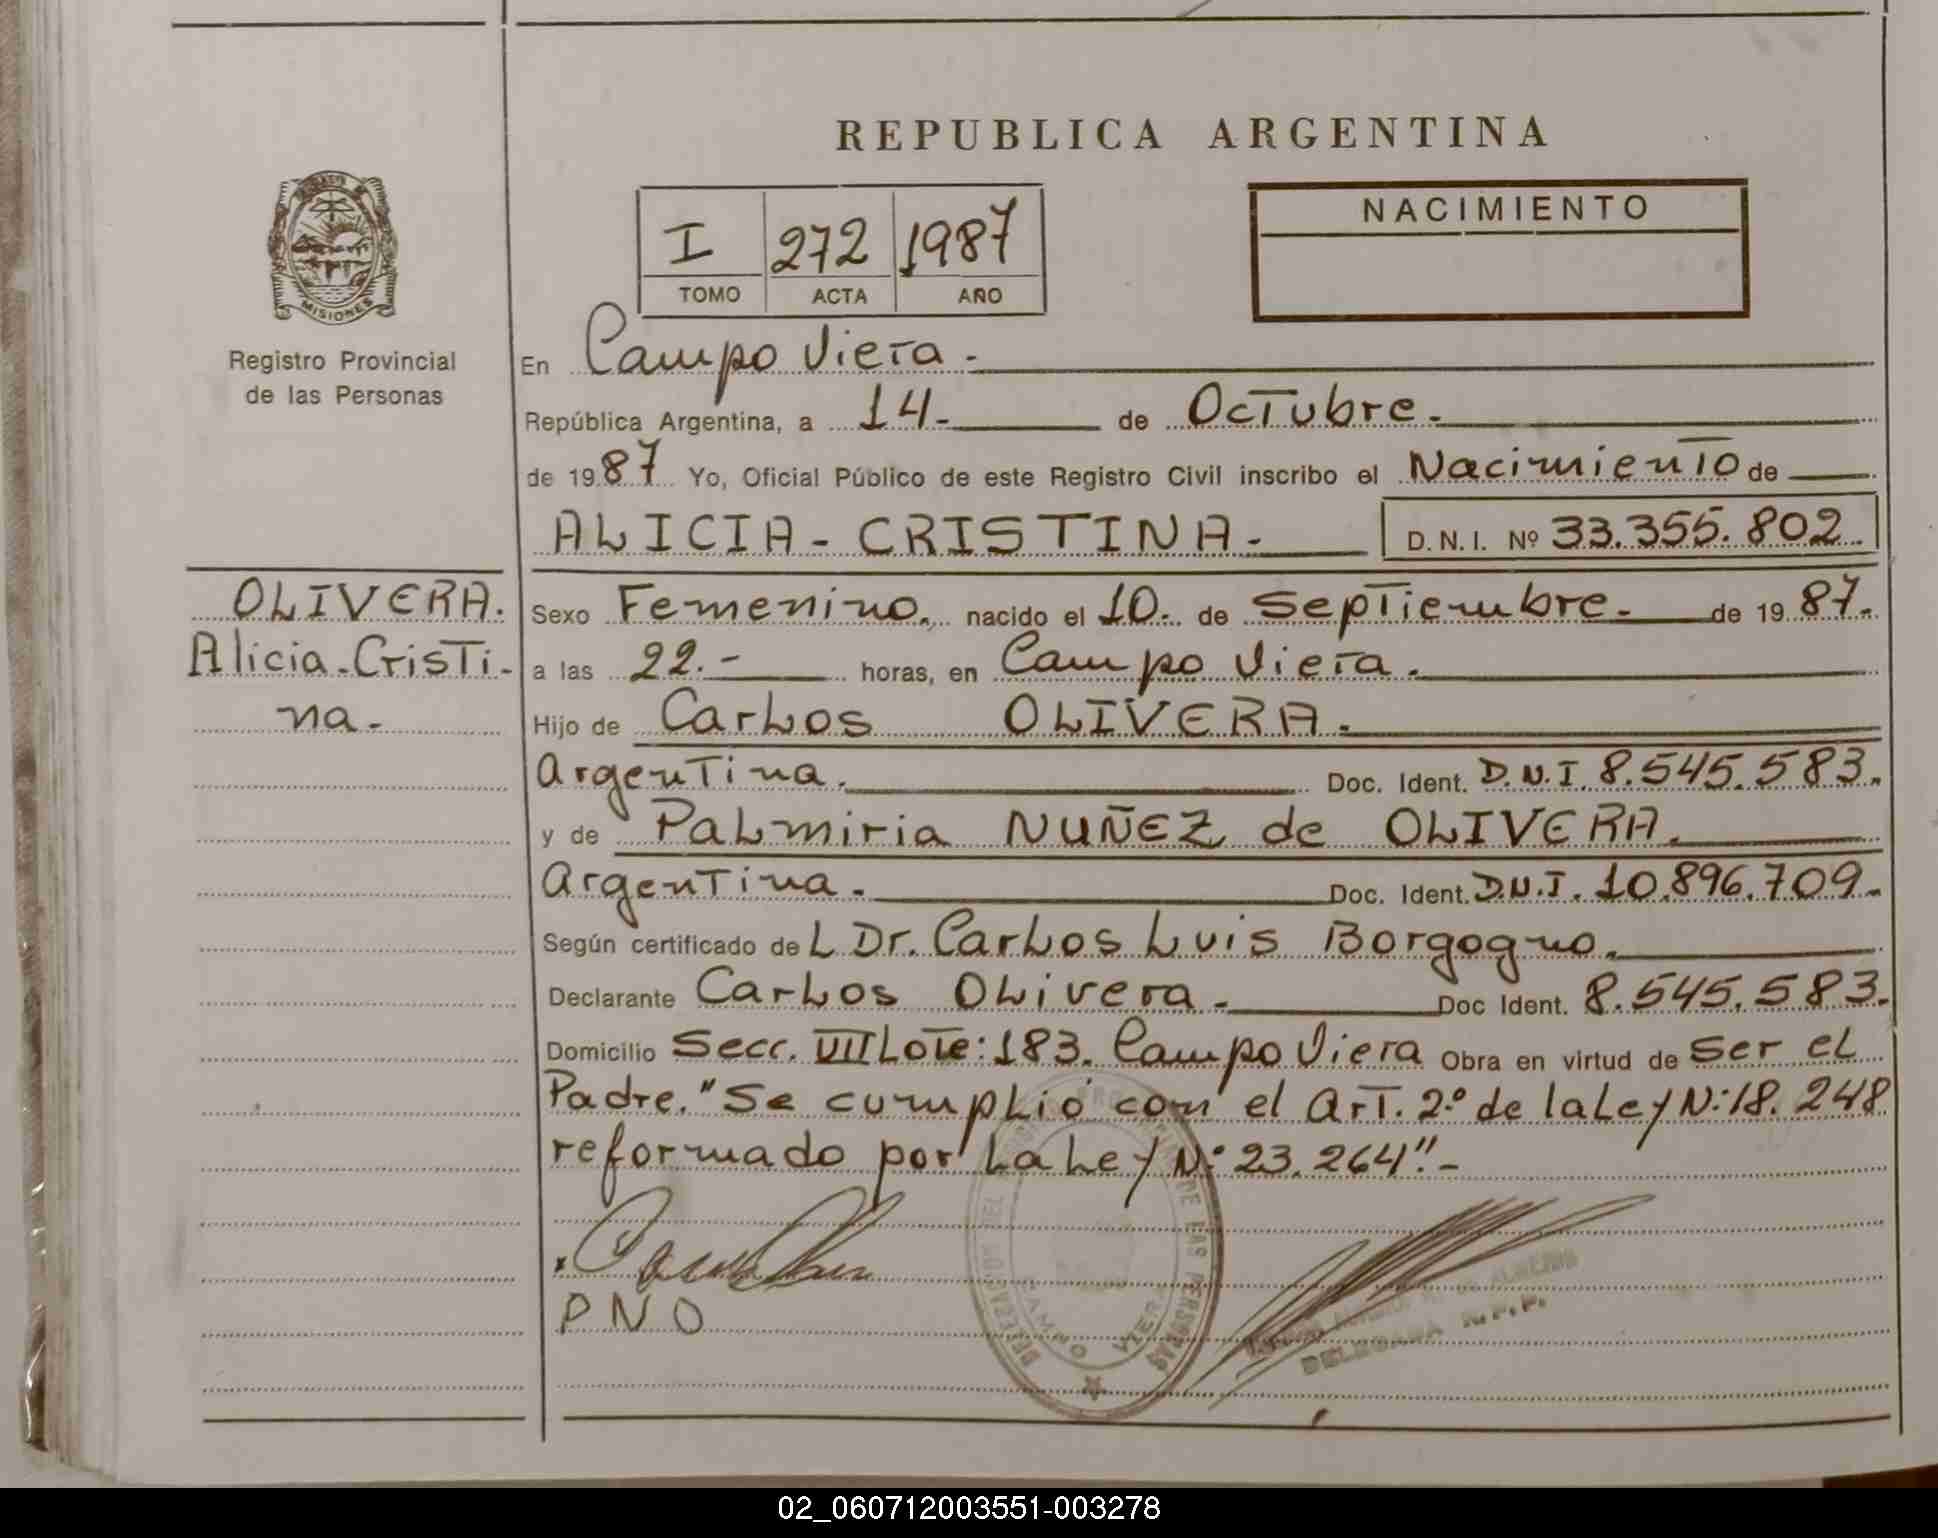 REPUBLICA ARGENTINA
I 272 1987
TOMO ACTA AÑO
NACIMIENTO
MISIONES
Registro Provincial
de las Personas
En Campo Viera.
República Argentina, a 14. de Octubre.
de 1987 Yo, Oficial Público de este Registro Civil inscribo el Nacimiento de
ALICIA - CRISTINA. D.N.I. Nº 33.355.802.
OLIVERA.
Alicia-Cristi-
na.
Sexo Femenino. nacido el 10. de Septiembre. de 1987.
a las 22.- horas, en Campo Viera.
Hijo de Carlos OLIVERA.
Argentina. Doc. Ident. D.N.I. 8.545.583.
y de Palmiria NUÑEZ de OLIVERA.
Argentina. Doc. Ident. D.N.I. 10.896.709.
Según certificado del Dr. Carlos Luis Borgogno.
Declarante Carlos Olivera. Doc Ident. 8.545.583.
Domicilio Secc. VII Lote: 183. Campo Viera Obra en virtud de ser el
Padre. "Se cumplió con el Art. 2º de la Ley Nº 18.248
reformado por la Ley Nº 23.264".-
P N O
DE LAS PERSONAS
CAMPO VIERA
DELEGADA R.P.P.
02_060712003551-003278